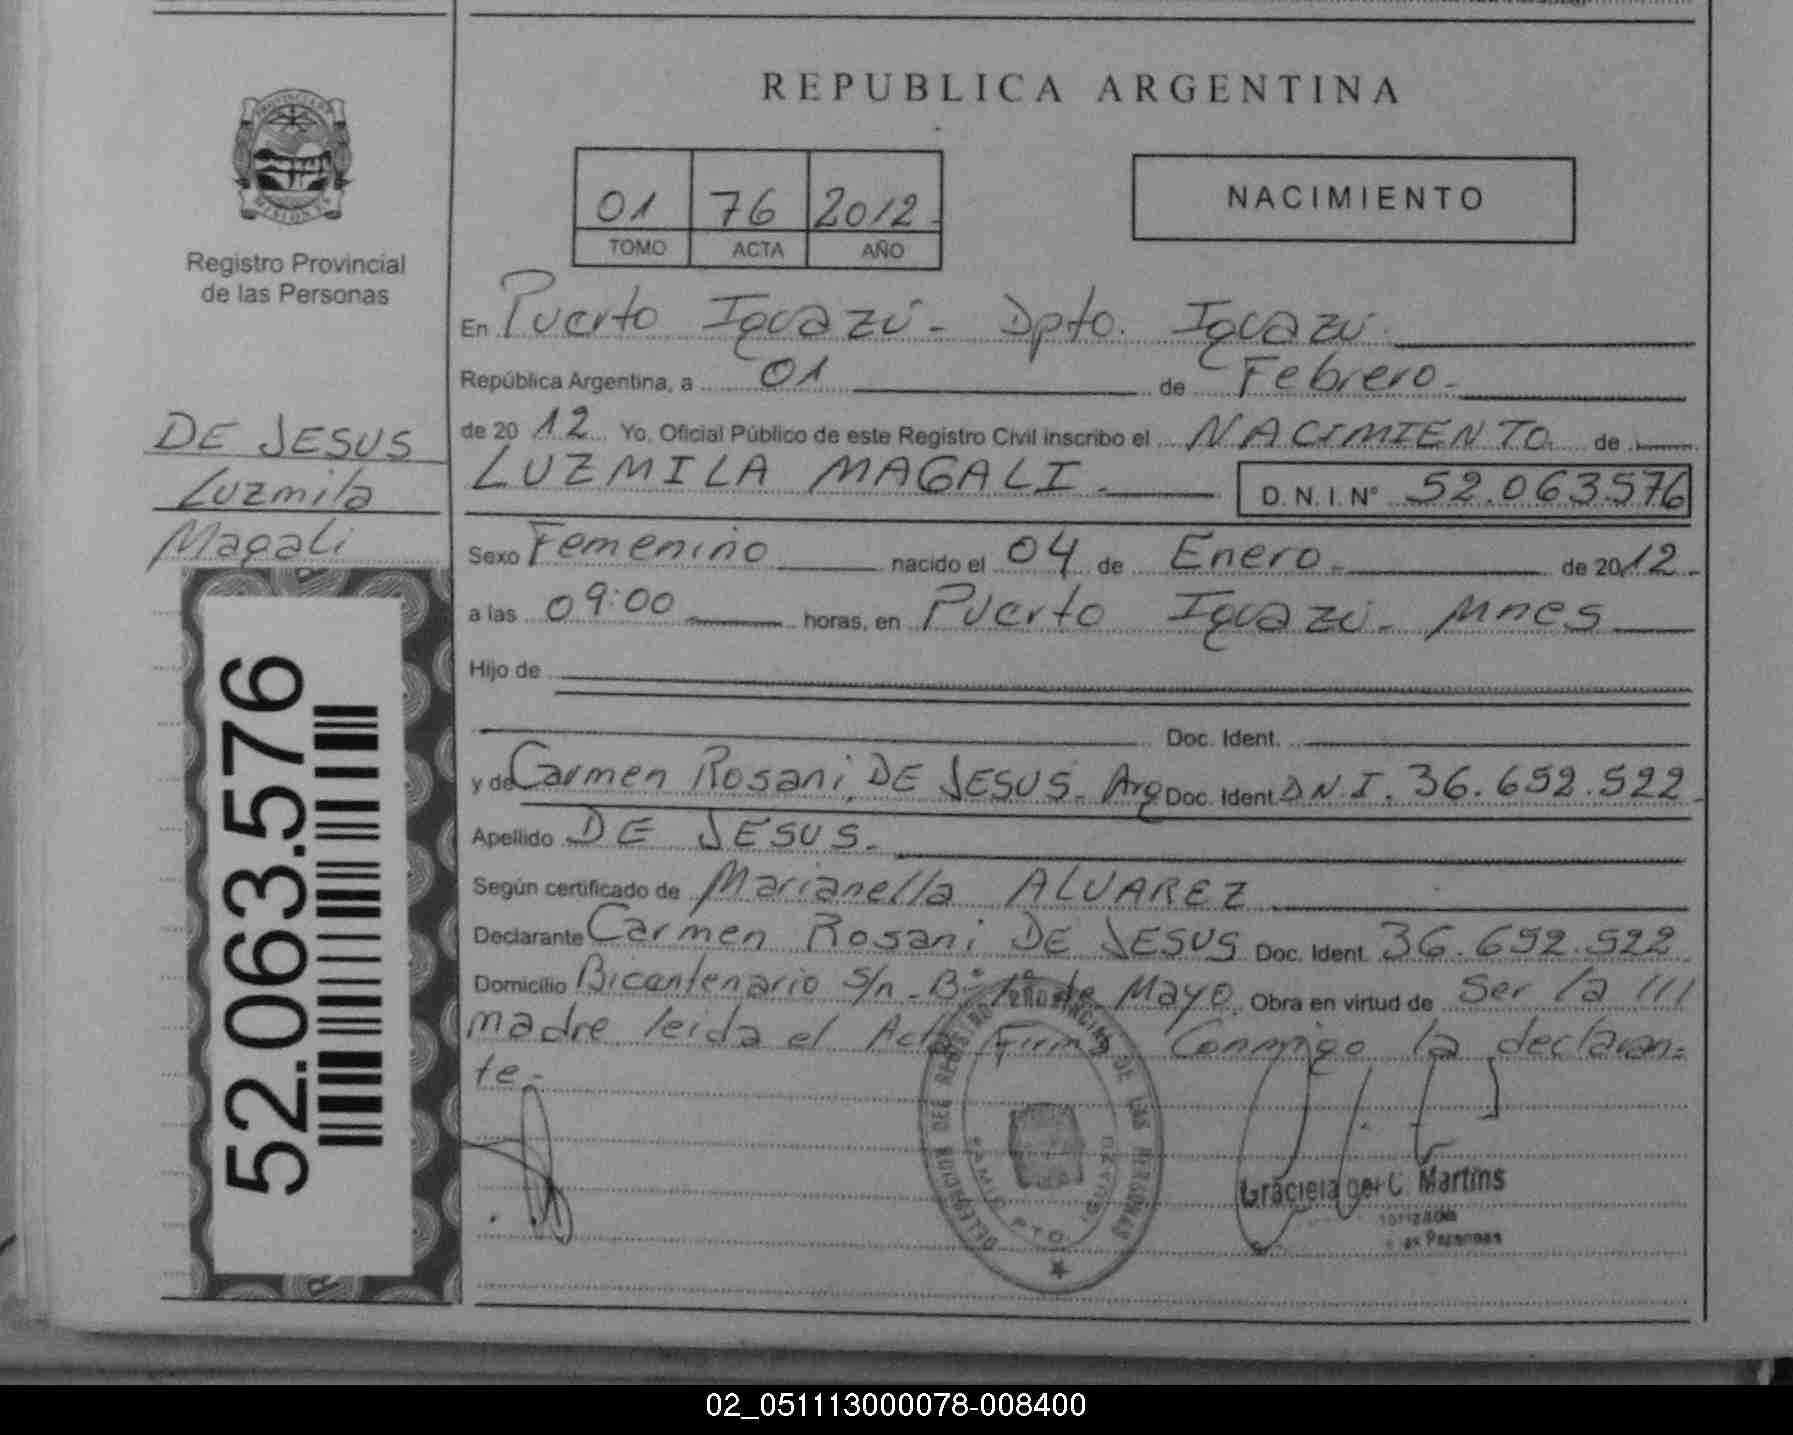 REPUBLICA ARGENTINA
PROVINCIA DE
MISIONES
Registro Provincial
de las Personas
01 76 2012.
TOMO ACTA AÑO
NACIMIENTO
En Puerto Iguazú - Dpto. Iguazú.
República Argentina, a 01 de Febrero.
de 20 12 Yo, Oficial Público de este Registro Civil inscribo el NACIMIENTO. de
LUZMILA MAGALI. D.N.I. N° 52.063576
DE JESUS
Luzmila
Magali
Sexo Femenino nacido el 04 de Enero. de 20 12.
a las 09:00 horas, en Puerto Iguazú. Mnes
Hijo de
Doc. Ident.
y de Carmen Rosani DE JESUS. Arg Doc. Ident. D.N.I. 36.652.522
Apellido DE JESUS.
Según certificado de Marianella ALVAREZ
Declarante Carmen Rosani DE JESUS Doc. Ident. 36.652.522
Domicilio Bicentenario S/n - B° 1° de Mayo. Obra en virtud de Ser la ///
madre leida el Acta Firma Conmigo la declaran-
te.-
52.063.576
DELEGACION DEL REGISTRO PROVINCIAL DE LAS PERSONAS
Graciela del C. Martins
las Personas
02_051113000078-008400